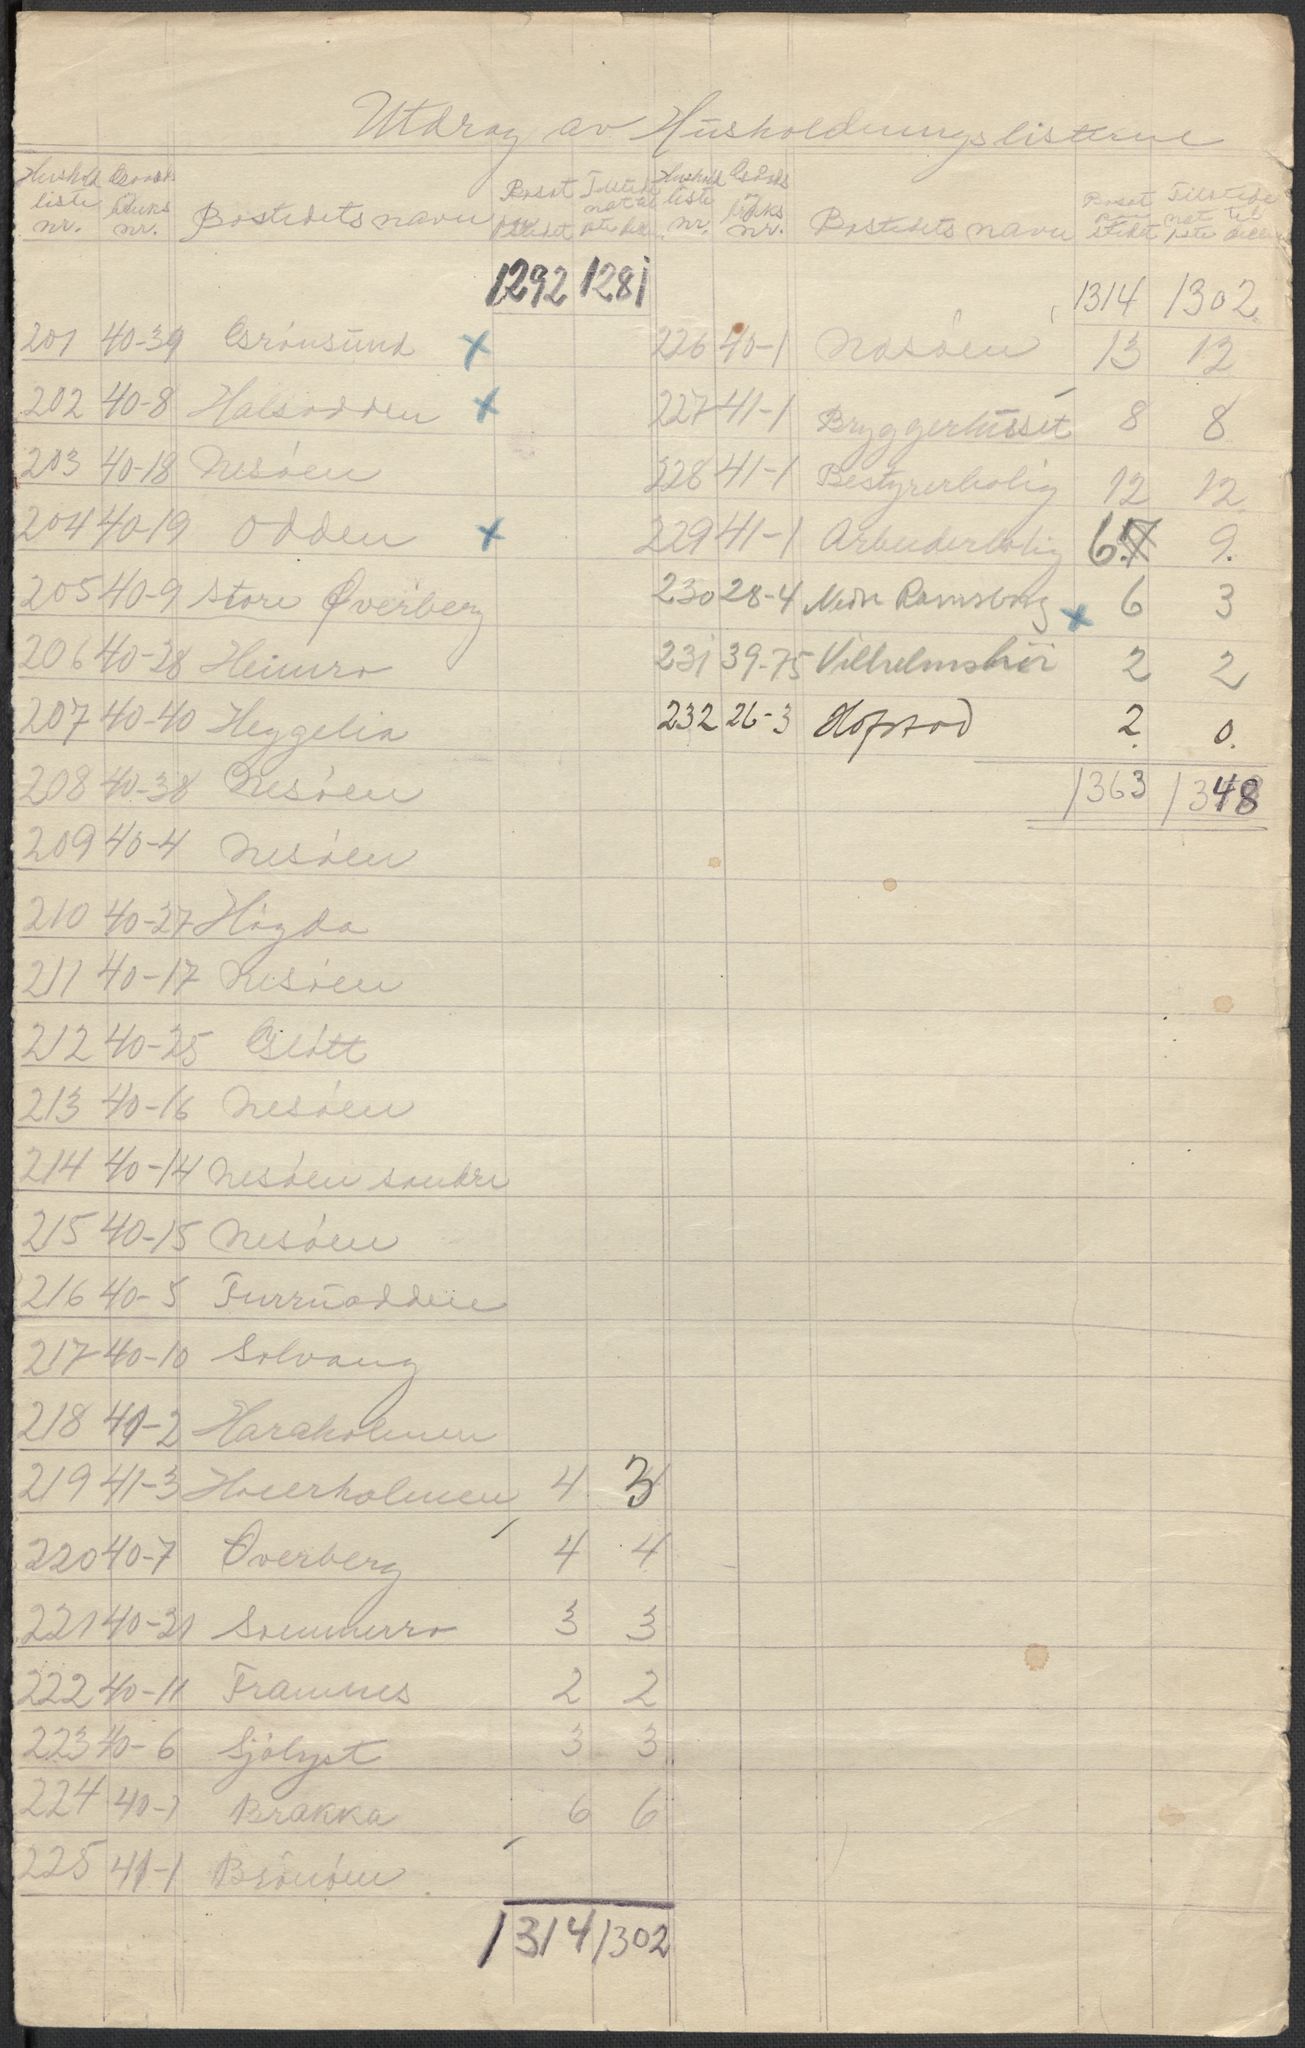 Utdrag av Husholdningslisterne
Hushold liste nr. Gaards bruks nr. Bostedets navn Bosat paa stedet Tilstede nat til
1292 1281
201 40-39 Grönsund x
202 40-8 Halsodden x
203 40-18 Nesöen
204 40-19 Odden x
205 40-9 Store Øverberg
206 40-28 Heimro
207 40-40 Heggelia
208 40-38 Nesöen
209 40-4 Nesöen
210 40-27 Högda
211 40-17 Nesöen
212 40-25 Glött
213 40-16 Nesöen
214 40-14 Nesöen söndre
215 40-15 Nesöen
216 40-5 Furruodden
217 40-10 Solvang
218 41-2 Haraholmen
219 41-3 Hoierholmen 4 3
220 40-7 Overberg 4 4
221 40-21 Sommerro 3 3
222 40-11 Framnes 2 2
223 40-6 Sjölyst 3 3
224 40-1 Brakka 6 6
225 41-1 Brönöen
1314 1302
Hushold liste nr. Gaards bruks nr. Bostedets navn Bosat paa stedet Tilstede nat til
1314 1302
226 40-1 Nesöen 13 12
227 41-1 Bryggerhuset 8 8
228 41-1 Bestyrerbolig 12 12
229 41-1 Arbeiderbolig 6 9.
230 28-4 Nedr Ramsborg x 6 3
231 39-75 Vilhelmshöi 2 2
232 26-3 Hofstad 2. 0.
1363 1348